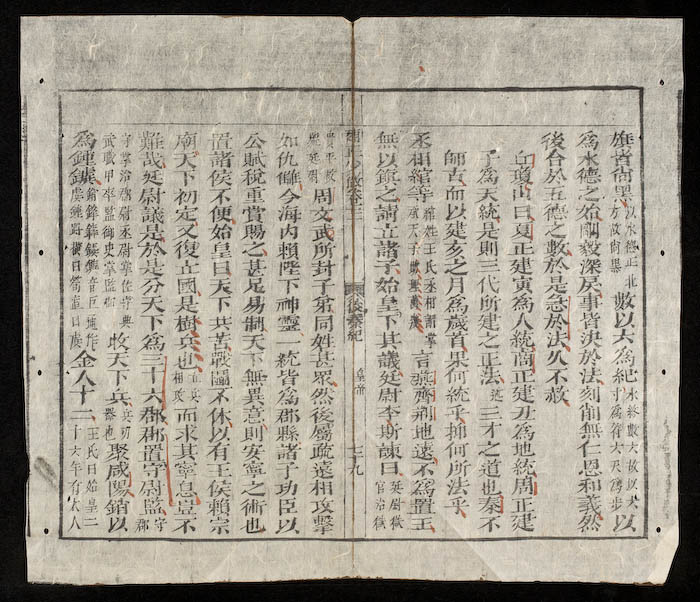 旗皆尚黑 以水德正北方故尚黑 數以六爲紀 水終數六故以六寸爲符六尺爲步 以
爲水德之始剛毅深戾事皆決於法刻削無仁恩和義然
後合於五德之數於是急於法久不赦
丘瓊山曰夏正建寅爲人統商正建丑爲地統周正建
子爲天統是則三代所建之正法 三才之道也秦不
師古而以建亥之月爲歲首果何統乎抑何所法乎
丞相綰等 綰姓王氏丞相謂掌承天子 言燕齊荆地遠不爲置王
無以鎮之請立諸子始皇下其議廷尉李斯諫曰 廷尉獄官治獄
卷三
後秦紀
皇帝
貴平故廷尉 周文武所封子弟同姓甚眾然後屬疏遠相攻擊
如仇讎今海内賴陛下神靈一統皆爲郡縣諸子功臣以
公賦稅重賞賜之甚足易制天下無異意則安寧之術也
置諸侯不便始皇曰天下共苦戰鬪不休以有王侯賴宗
廟天下初定又復立國是樹兵也 相攻 而求其寧息豈不
難哉廷尉議是於是分天下爲三十六郡郡置守尉監 守郡
守掌治 尉丞尉掌佐守典武職甲卒監御史掌監郡 收天下兵 兵刃器也 聚咸陽銷以
爲鍾鐻 金人十二 王氏曰始皇二十六年有大人